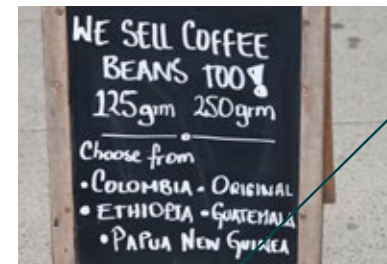 WE SELL COFFEE
BEANS TOO!
125grm 250grm
Choose from
• COLOMBIA - ORIGINAL
• ETHIOPIA • GUATEMALA
• PAPUA NEW GUINEA